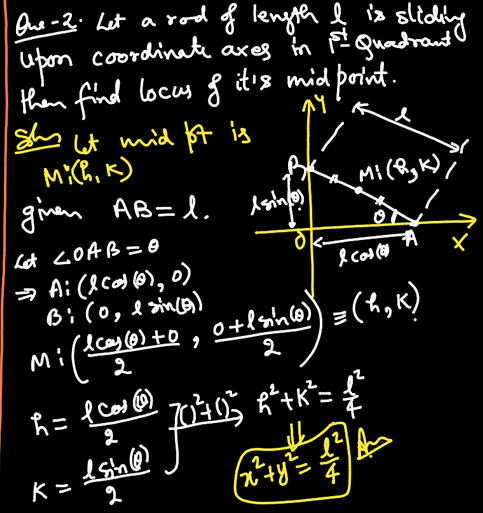 Que-2. Let a rod of length l is sliding
upon coordinate axes in 1st Quadrant
then find locus of it's midpoint.
Soln Let mid pt is
M:(h, k)
given AB = l.
Let ∠OAB = θ
⇒ A: (l cos(θ), 0)
B: (0, l sin(θ))
M: ( (l cos(θ)+0)/2 , (0+l sin(θ))/2 ) ≡ (h, k)
h = l cos(θ)/2
k = l sin(θ)/2
()²+()² → h²+k² = l²/4
⇓
x²+y² = l²/4 Ans
Y
l
B
M:(h, k)
l sin(θ)
θ
O
A
X
l cos(θ)